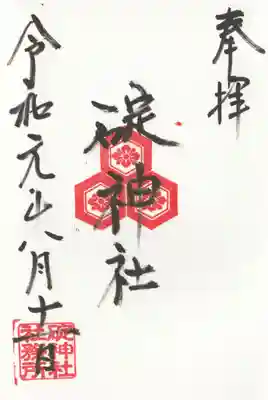 奉拝
碇神社
令和元年八月十一日
碇神社
社務所